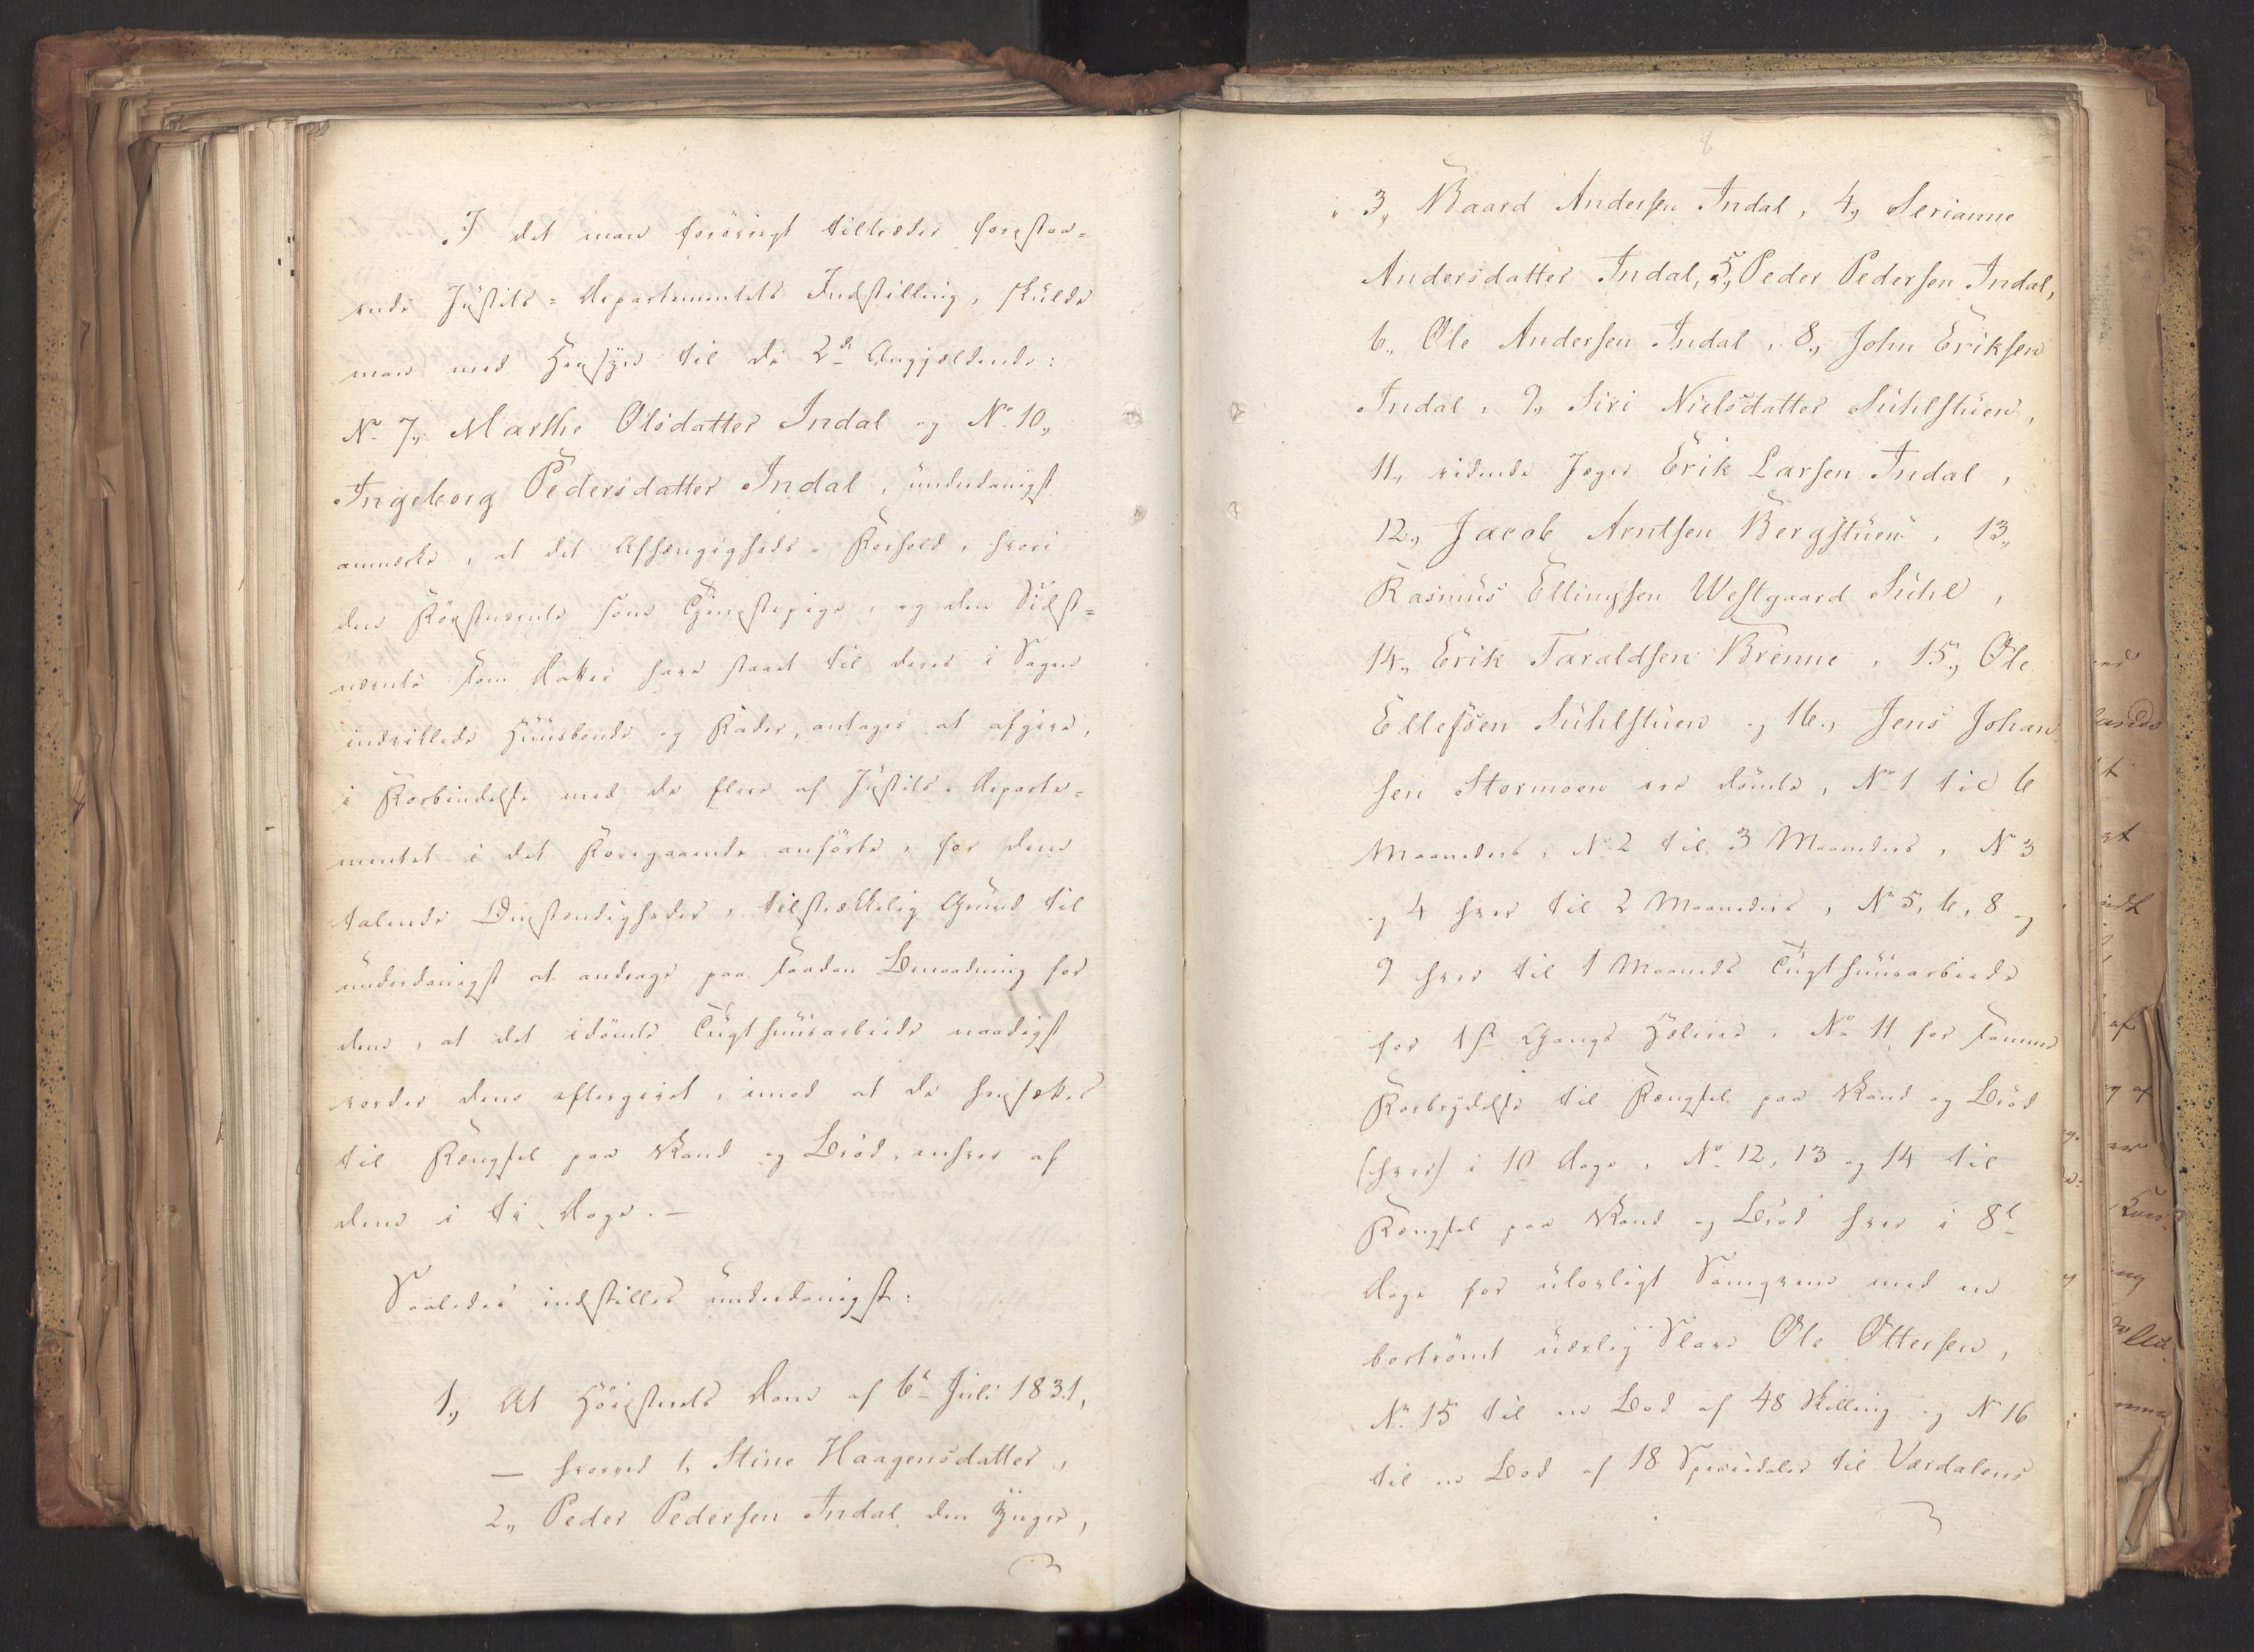 I det man forövrigt tiltræder forestaa=
ende Justits=Departementets Indstilling, skulde
man med Hensyn til de 2de Angjældende:
No 7, Marthe Olsdatter Indal og No 10,
Ingeborg Pedersdatter Indal, underdanigst
anmærke, at det Afhængigheds-Forhold, hvori
den Förstnævnte som Tjenestepige, og den Sidst=
nævnte som Datter have staaet til deres i Sagen
indviklede Huusbonde og Fader, antages at afgive,
i Forbindelse med de flere af Justits-Departe=
mentet i det Foregaaende anförte, for dem
talende Omstændigheder, tilstrækkelig Grund til
underdanigst at andrage paa saadan Benaadning for
dem, at det idömte Tugthuusarbeide naadigst
vorder dem eftergivet, imod at de hensættes
til Fængsel paa Vand og Bröd, enhver af
dem i ti Dage.—
Saaledes indstilles underdanigst:
1, At Höiesterets Dom af 6te Juli 1831,
— hvorved 1, Stine Haagensdatter,
2, Peder Pedersen Indal den Yngre,
8
3, Baard Andersen Indal, 4, Serianne
Andersdatter Indal, 5, Peder Pedersen Indal,
6, Ole Andersen Indal, 8, John Eriksen
Indal, 9, Siri Nielsdatter Suhlstuen,
11, ridende Jæger Erik Larsen Indal,
12, Jacob Arntsen Bergstuen, 13,
Rasmus Ellingsen Westgaard Suhl,
14, Erik Taraldsen Brenne, 15, Ole
Ellefsen Suhlstuen og 16, Jens Johan
sen Stormoen ere dömte, No 1 til 6
Maaneders, No 2 til 3 Maaneders, No 3
og 4 hver til 2 Maaneders, No 5, 6, 8 og
9 hver til 1 Maaneds Tugthuusarbeide
for 1ste Gangs Hæleri, No 11 for samme
Forbrydelse til Fængsel paa Vand og Bröd
(hver) i 10 Dage, No 12, 13 og 14 til
Fængsel paa Vand og Bröd hver i 8te
Dage for ulovligt Samqvem med en
bortrömt uærlig Slave Ole Ottersen,
No 15 til en Bod af 48 Skilling og No 16
til en Bod af 18 Speciedaler til Værdalens